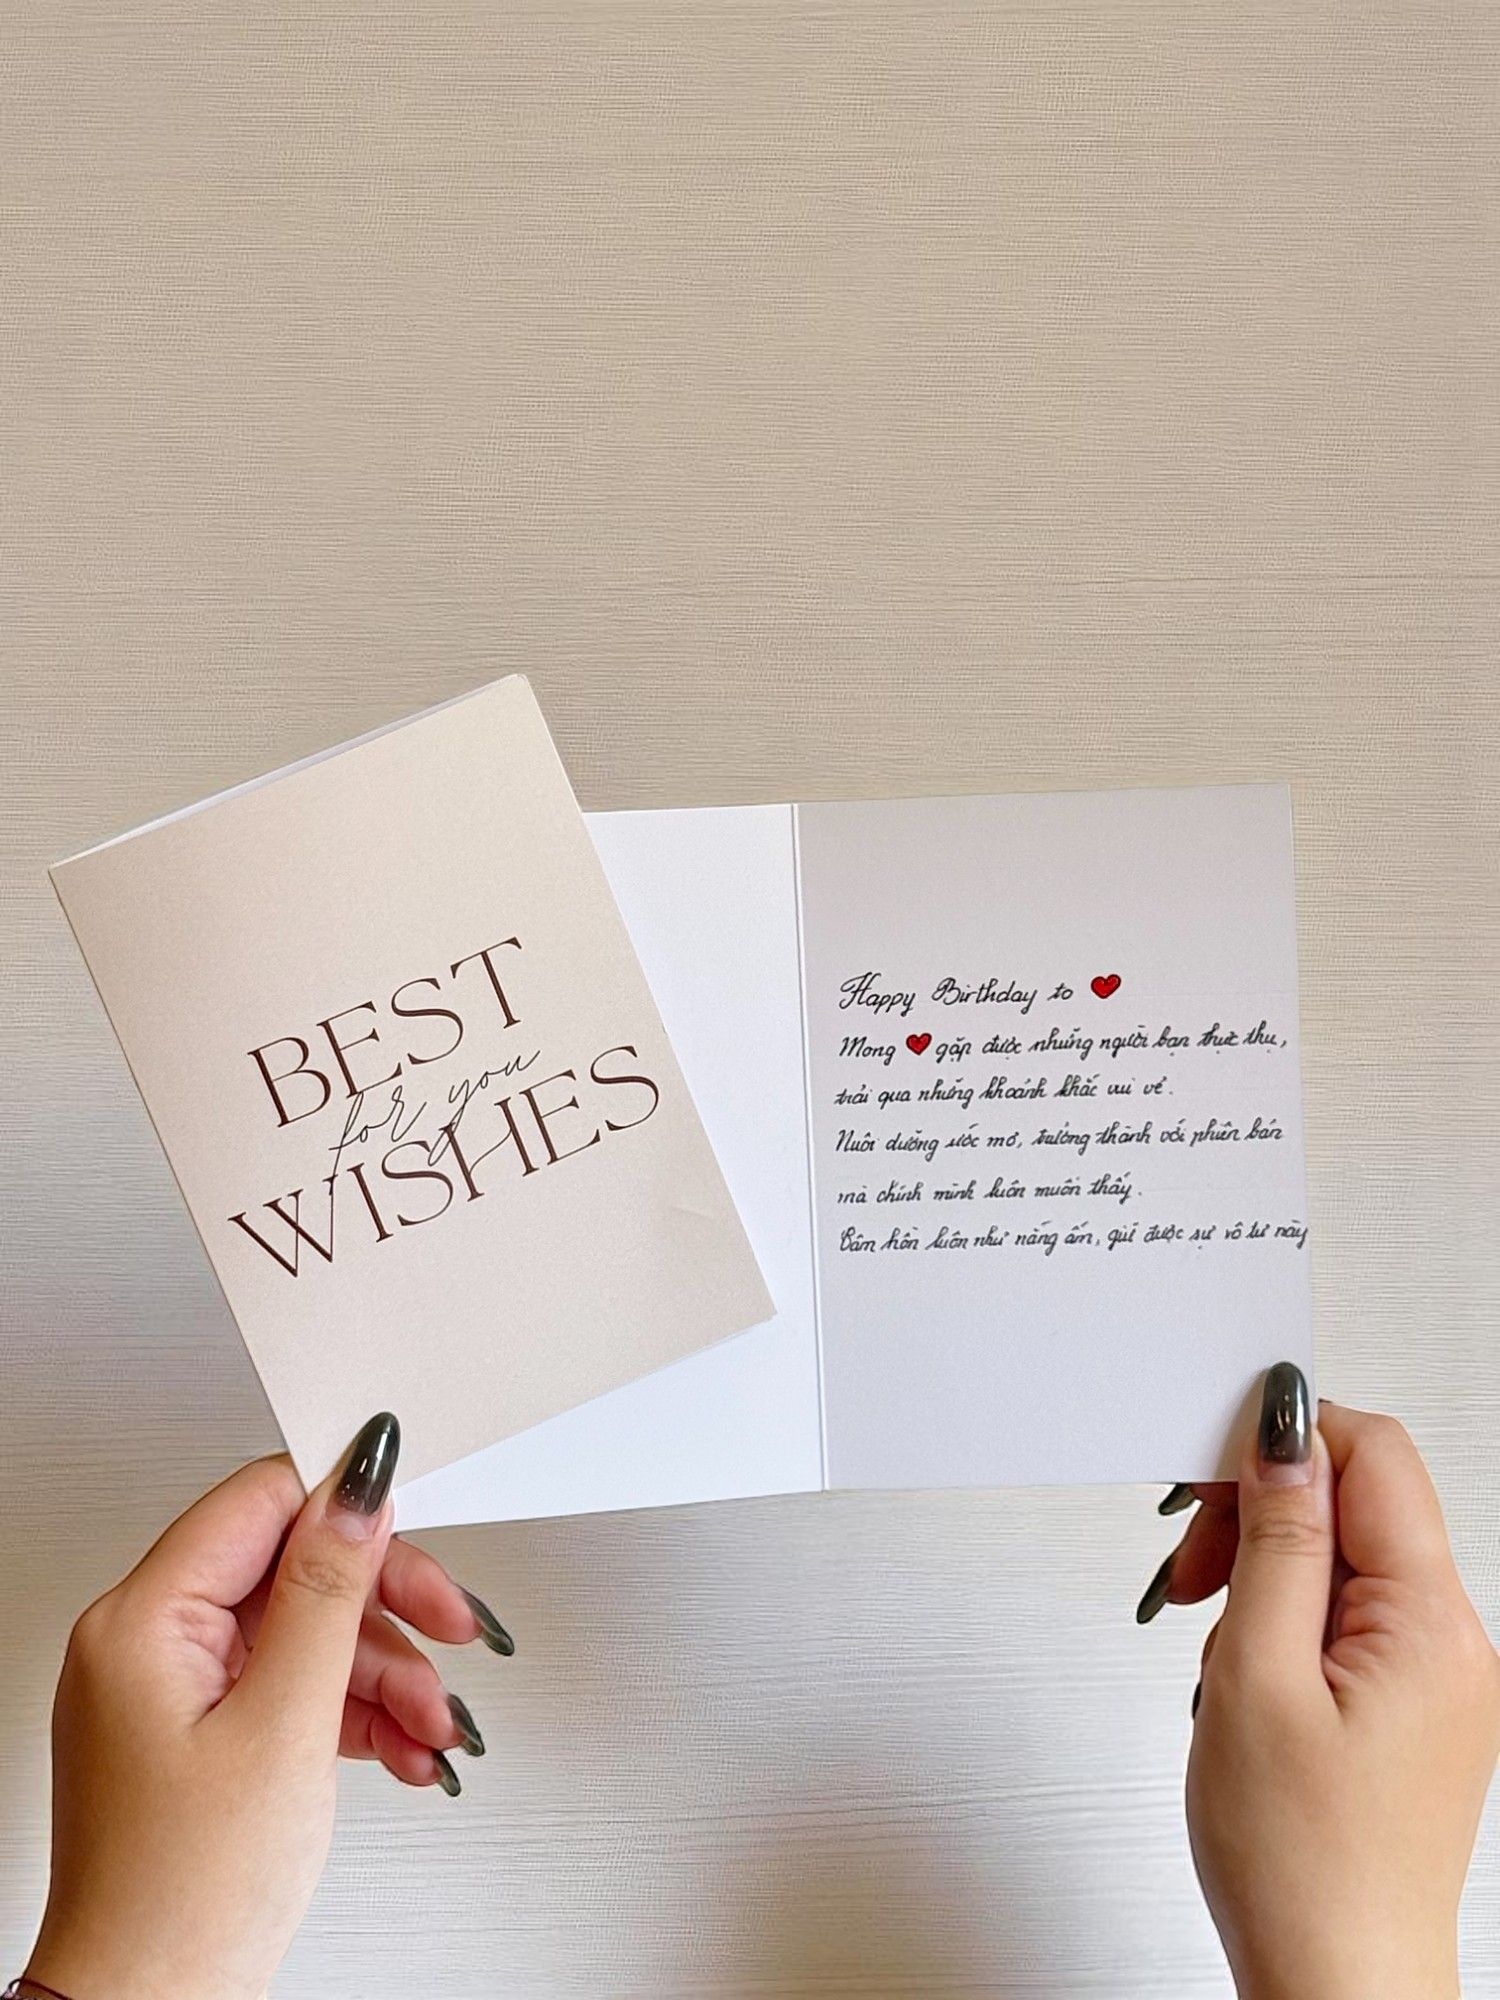 BEST
for you
WISHES
Happy Birthday to ❤
Mong ❤ gặp được những người bạn thực thụ,
trải qua những khoảnh khắc vui vẻ.
Nuôi dưỡng ước mơ, trưởng thành với phiên bản
mà chính mình luôn muốn thấy.
Tâm hồn luôn như nắng ấm, giữ được sự vô tư này